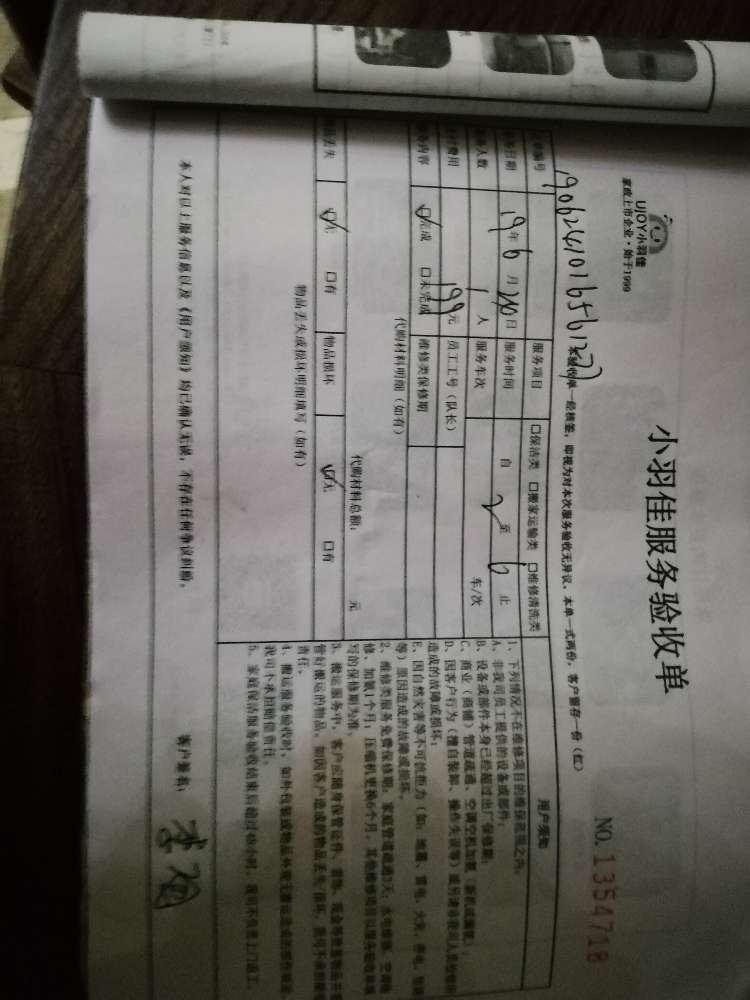 UJOY小羽佳
家政上市企业·始于1999
小羽佳服务验收单
NO.1354718
本验收单一经核签，即视为对本次服务验收无异议。本单一式两份，客户留存一份（红）
单编号 服务项目 □保洁类 □搬家运输类 □维修清洗类
日期 19年6月 日 服务时间 自 2 至 6 止
人数 1人 服务车次 车/次
费用 199元 员工工号（队长）
内容 ☑完成 □未完成 维修类保修期
代购材料明细（如有）
代购材料总额： 元
丢失 ☑无 □有 物品损坏 ☑无 □有
物品丢失或损坏明细填写（如有）
用户须知
1、下列情况不在维修项目的维保范围之内：
A、非我司员工提供的设备或部件；
B、设备或部件本身已经超过出厂保修期；
C、商业（商铺）管道疏通、空调空机加氨（新机或漏氨）；
D、因客户行为（擅自装卸、操作失误等）或另请非我司人员检修所
造成的故障或损坏；
E、因自然灾害等不可抗拒力（如：地震、雷电、火灾、停电、
等）原因造成的故障或损坏。
2、维修类服务免费保修期：家庭管道疏通3天；水电维修、空调
修、加氨1个月；压缩机更换6个月，其他维修项目以服务验收单填
写的保修期为准。
3、搬运服务中，客户应随身保管证件、首饰、现金等贵重物品并
管好搬运的物品。如因客户造成的物品丢失/损坏，我司不承担赔偿
责任。
4、搬运服务验收时，如外包装或物品外观无搬运造成的损伤痕迹，
我司不承担赔偿责任。
5、家庭保洁服务验收结束后超过48小时，我司不负责上门返工。
本人对以上服务信息以及《用户须知》均已确认无误，不存在任何争议纠纷。
客户签名：